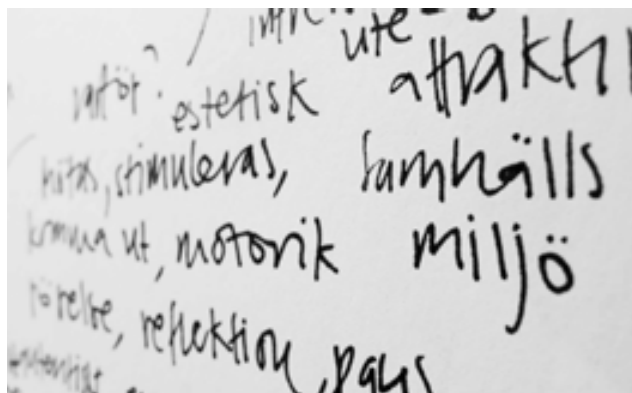 ute
varför? estetisk attrakti
hittas, stimuleras, samhälls
komma ut, motorik miljö
rörelse, reflektion, paus